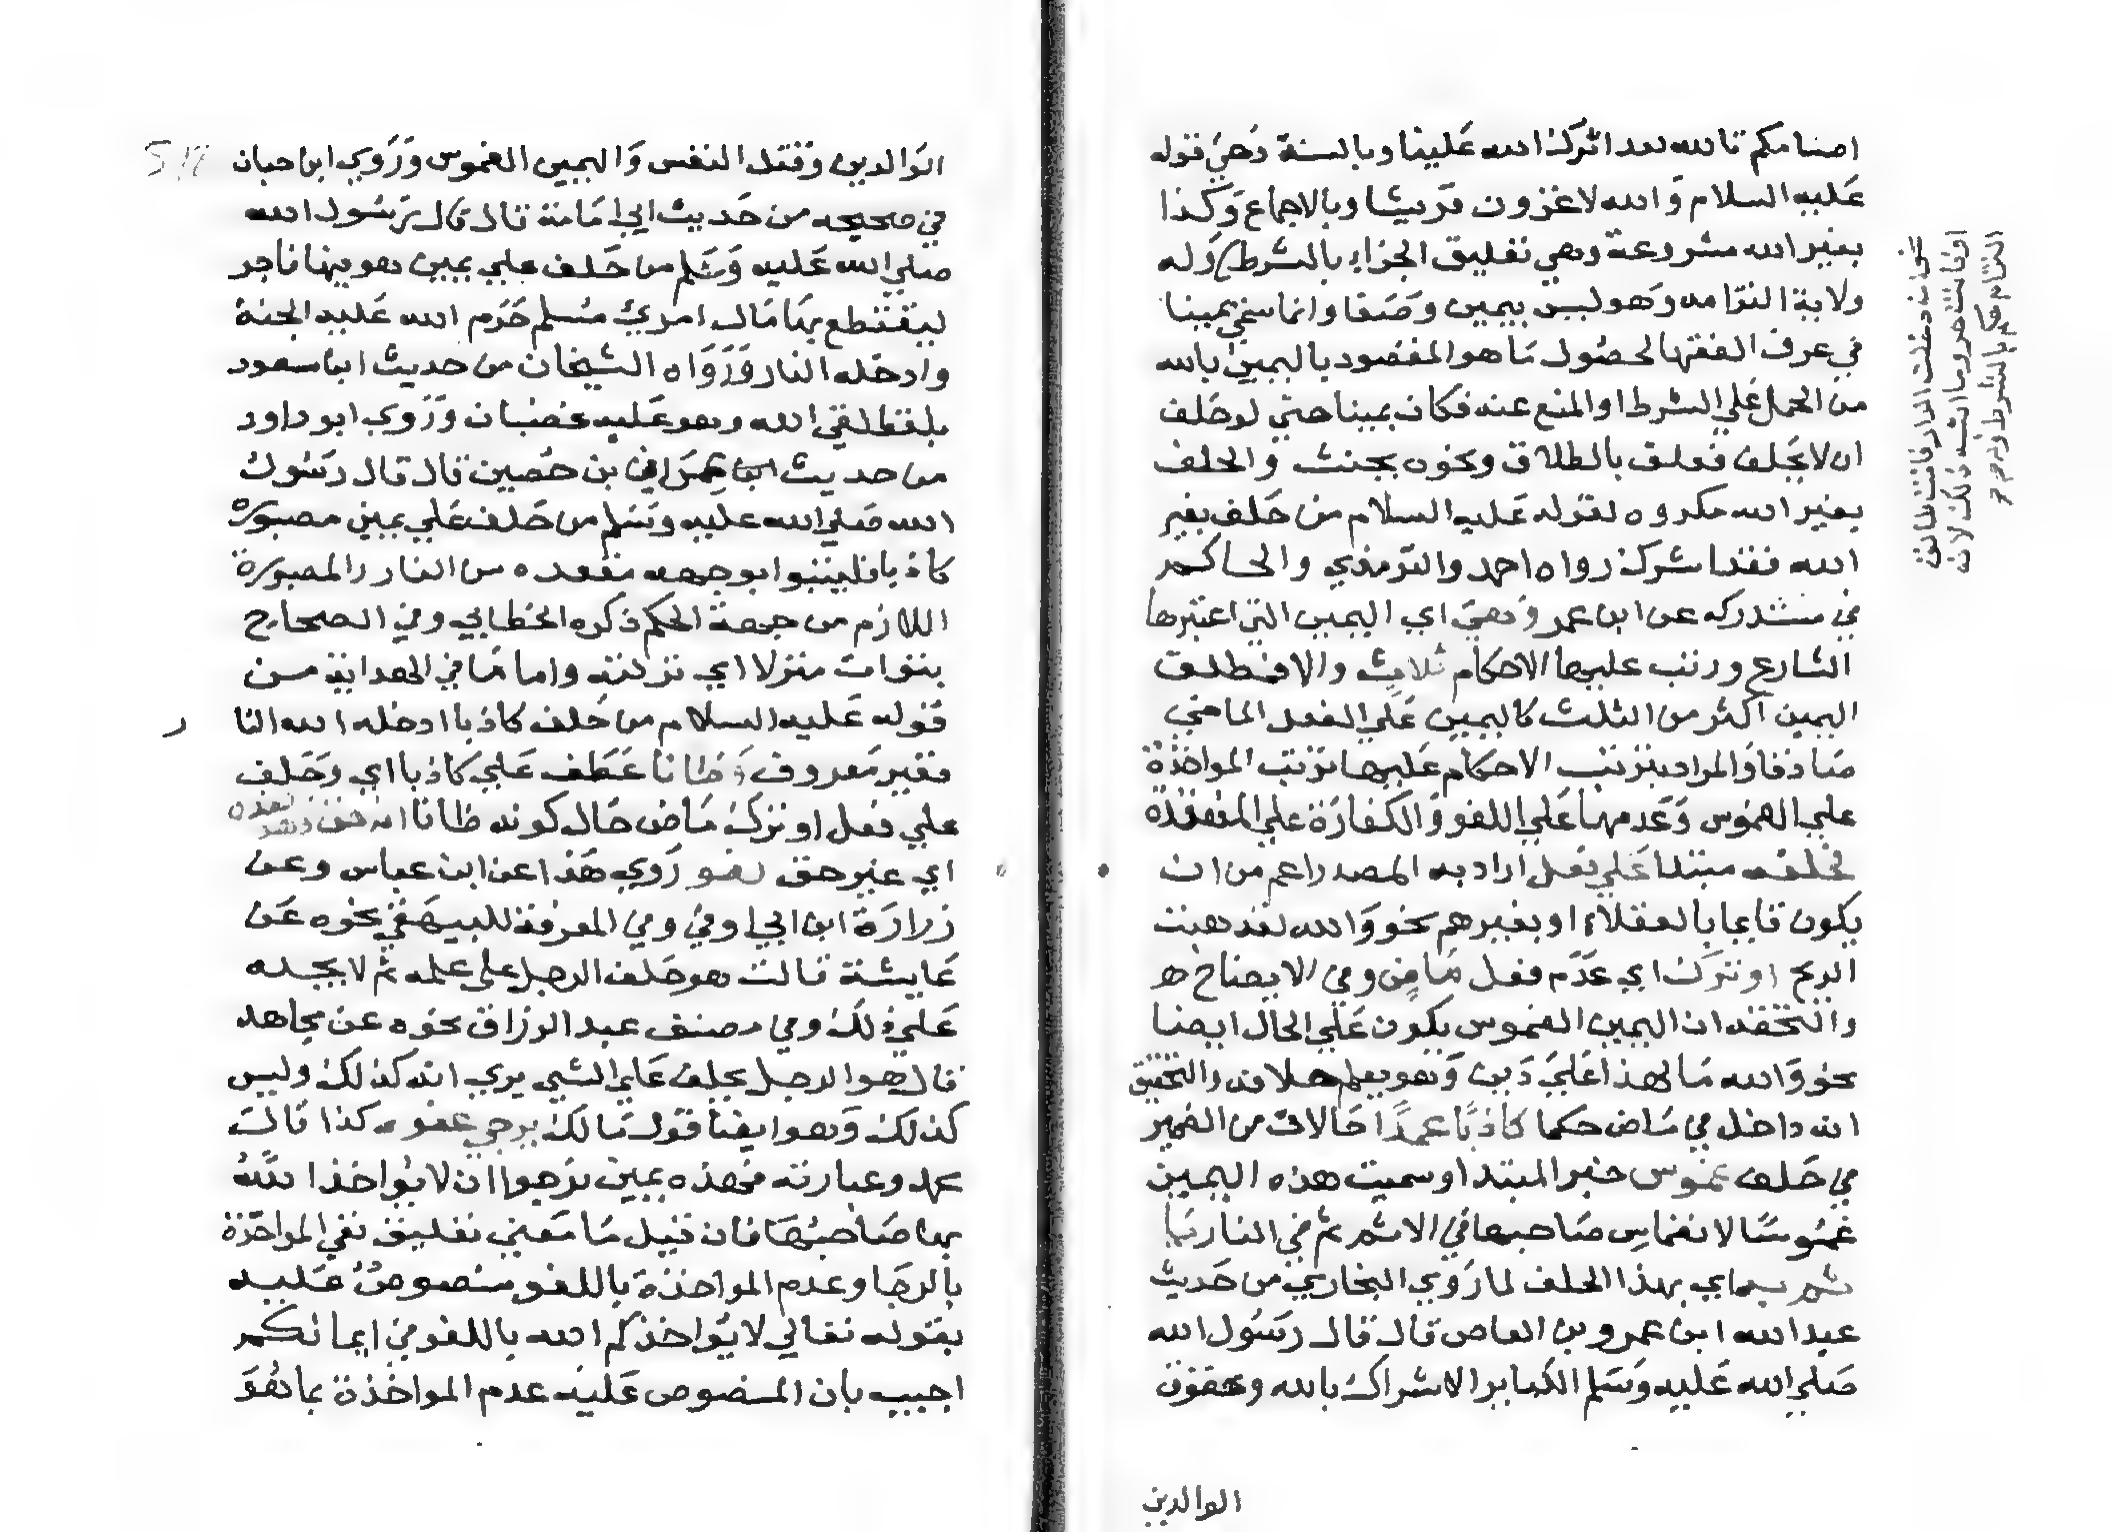 اصنامكم تالله لقد اثرك الله علينا وبالسنة وهي قوله
عليه السلام والله لاغزون قريشا وبالاجماع وكذا
بغير الله مشروعة وهي تعليق الجزاء بالشرط وله
ولاية التزامه وهو ليس بيمين وضعا وانما سمي يمينا
في عرف الفقها لحصول ما هو المقصود باليمين بالله
من الحمل علي الشرط او المنع عنه فكان يمينا حتي لو حلف
ان لا يحلف فعلق بالطلاق ونحوه يحنث والحلف
بغير الله مكروه لقوله عليه السلام من حلف بغير
الله فقد اشرك رواه احمد والترمذي والحاكم
في مستدركه عن ابن عمر وهي اي اليمين التي اعتبرها
الشارع ورتب عليها الاحكام ثلاث والا فمطلق
اليمين اكثر من الثلث كاليمين علي الفعل الماضي
صادقا والمراد بترتب الاحكام عليها ترتب المواخذة
علي الغموس وعدمها علي اللغو والكفارة علي المنعقدة
فحلفه مبتدا علي فعل اراد به المصدر اعم من ان
يكون قايما بالعقلاء او بغيرهم نحو والله لقد هبت
الريح او ترك اي عدم فعل ماض وفي الايضاح
والتحفه ان اليمين الغموس يكون علي الحال ايضا
نحو والله ما لهذا علي دين وهو يعلم خلافه والتحقيق
انه داخل في ماض حكما كاذبا عمدا حالات من الضمير
في حلف غموس خبر المبتدا وسميت هذه اليمين
غموسا لانغماس صاحبها في الاثم ثم في النار
ثم اي بهذا الحلف لما روي البخاري من حديث
عبد الله ابن عمرو بن العاص قال قال رسول الله
صلي الله عليه وسلم الكباير الاشراك بالله وعقوق
الوالدين
نحو ان دخلت الدار فانت طالق
التزام حكم بالشرط
الوالدين وقتل النفس واليمين الغموس وروي ابن حبان
في صحيحه من حديث ابي امامة قال قال رسول الله
صلي الله عليه وسلم من حلف علي يمين هو فيها فاجر
ليقتطع بها مال امري مسلم حرم الله عليه الجنة
وادخله النار ورواه الشيخان من حديث ابن مسعود
بلفظ لقي الله وهو عليه غضبان وروي ابو داود
من حديث عمران بن حصين قال قال رسول
الله صلي الله عليه وسلم من حلف علي يمين مصبورة
كاذبا فليتبوا بوجهه مقعده من النار والمصبورة
اللازم من جهة الحكم ذكره الخطابي وفي الصحاح
بتوات منزلا اي نزلته واما ما في الهداية من
قوله عليه السلام من حلف كاذبا ادخله الله النا
ر
فغير معروف وظانا عطف علي كاذبا اي وحلف
علي فعل او ترك ماض حال كونه ظانا انه حق وهو ضده
اي غير حق لغو روي هذا عن ابن عباس وعن
زرارة ابن ابي اوفي وفي المعرفة للبيهقي نحوه عن
عايشة قالت هو حلف الرجل علي علمه ثم لا يجده
علي ذلك وفي مصنف عبد الرزاق نحوه عن مجاهد
قال هو الرجل يحلف علي الشي يري انه كذلك وليس
كذلك وهو ايضا قول مالك يرجي عفوه كذا قال
محمد وعبارته فهذه يمين نرجوا ان لا يواخذ الله
بها صاحبها فان قيل ما معني تعليق نفي المواخذة
بالرجا وعدم المواخذة باللغو منصوص عليه
بقوله تعالي لا يواخذكم الله باللغو في ايمانكم
اجيب بان المنصوص عليه عدم المواخذة بما هو